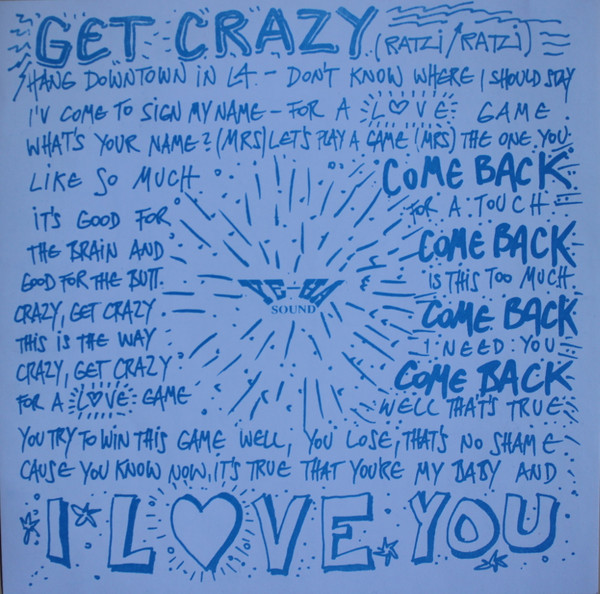 GET CRAZY (RATZI/RATZI)
HANG DOWNTOWN IN LA. - DON'T KNOW WHERE I SHOULD STAY
I'V COME TO SIGN MY NAME - FOR A LOVE GAME.
WHAT'S YOUR NAME? (MRS) LET'S PLAY A GAME (MRS) THE ONE YOU
LIKE SO MUCH
COME BACK
FOR A TOUCH
IT'S GOOD FOR
THE BRAIN AND
GOOD FOR THE BUTT.
CRAZY, GET CRAZY
THIS IS THE WAY
CRAZY, GET CRAZY
FOR A LOVE GAME
YE-HA
SOUND
COME BACK
IS THIS TOO MUCH
COME BACK
I NEED YOU
COME BACK
WELL THAT'S TRUE
YOU TRY TO WIN THIS GAME WELL, YOU LOSE, THAT'S NO SHAME
CAUSE YOU KNOW NOW, IT'S TRUE THAT YOU'RE MY BABY AND
I LOVE YOU